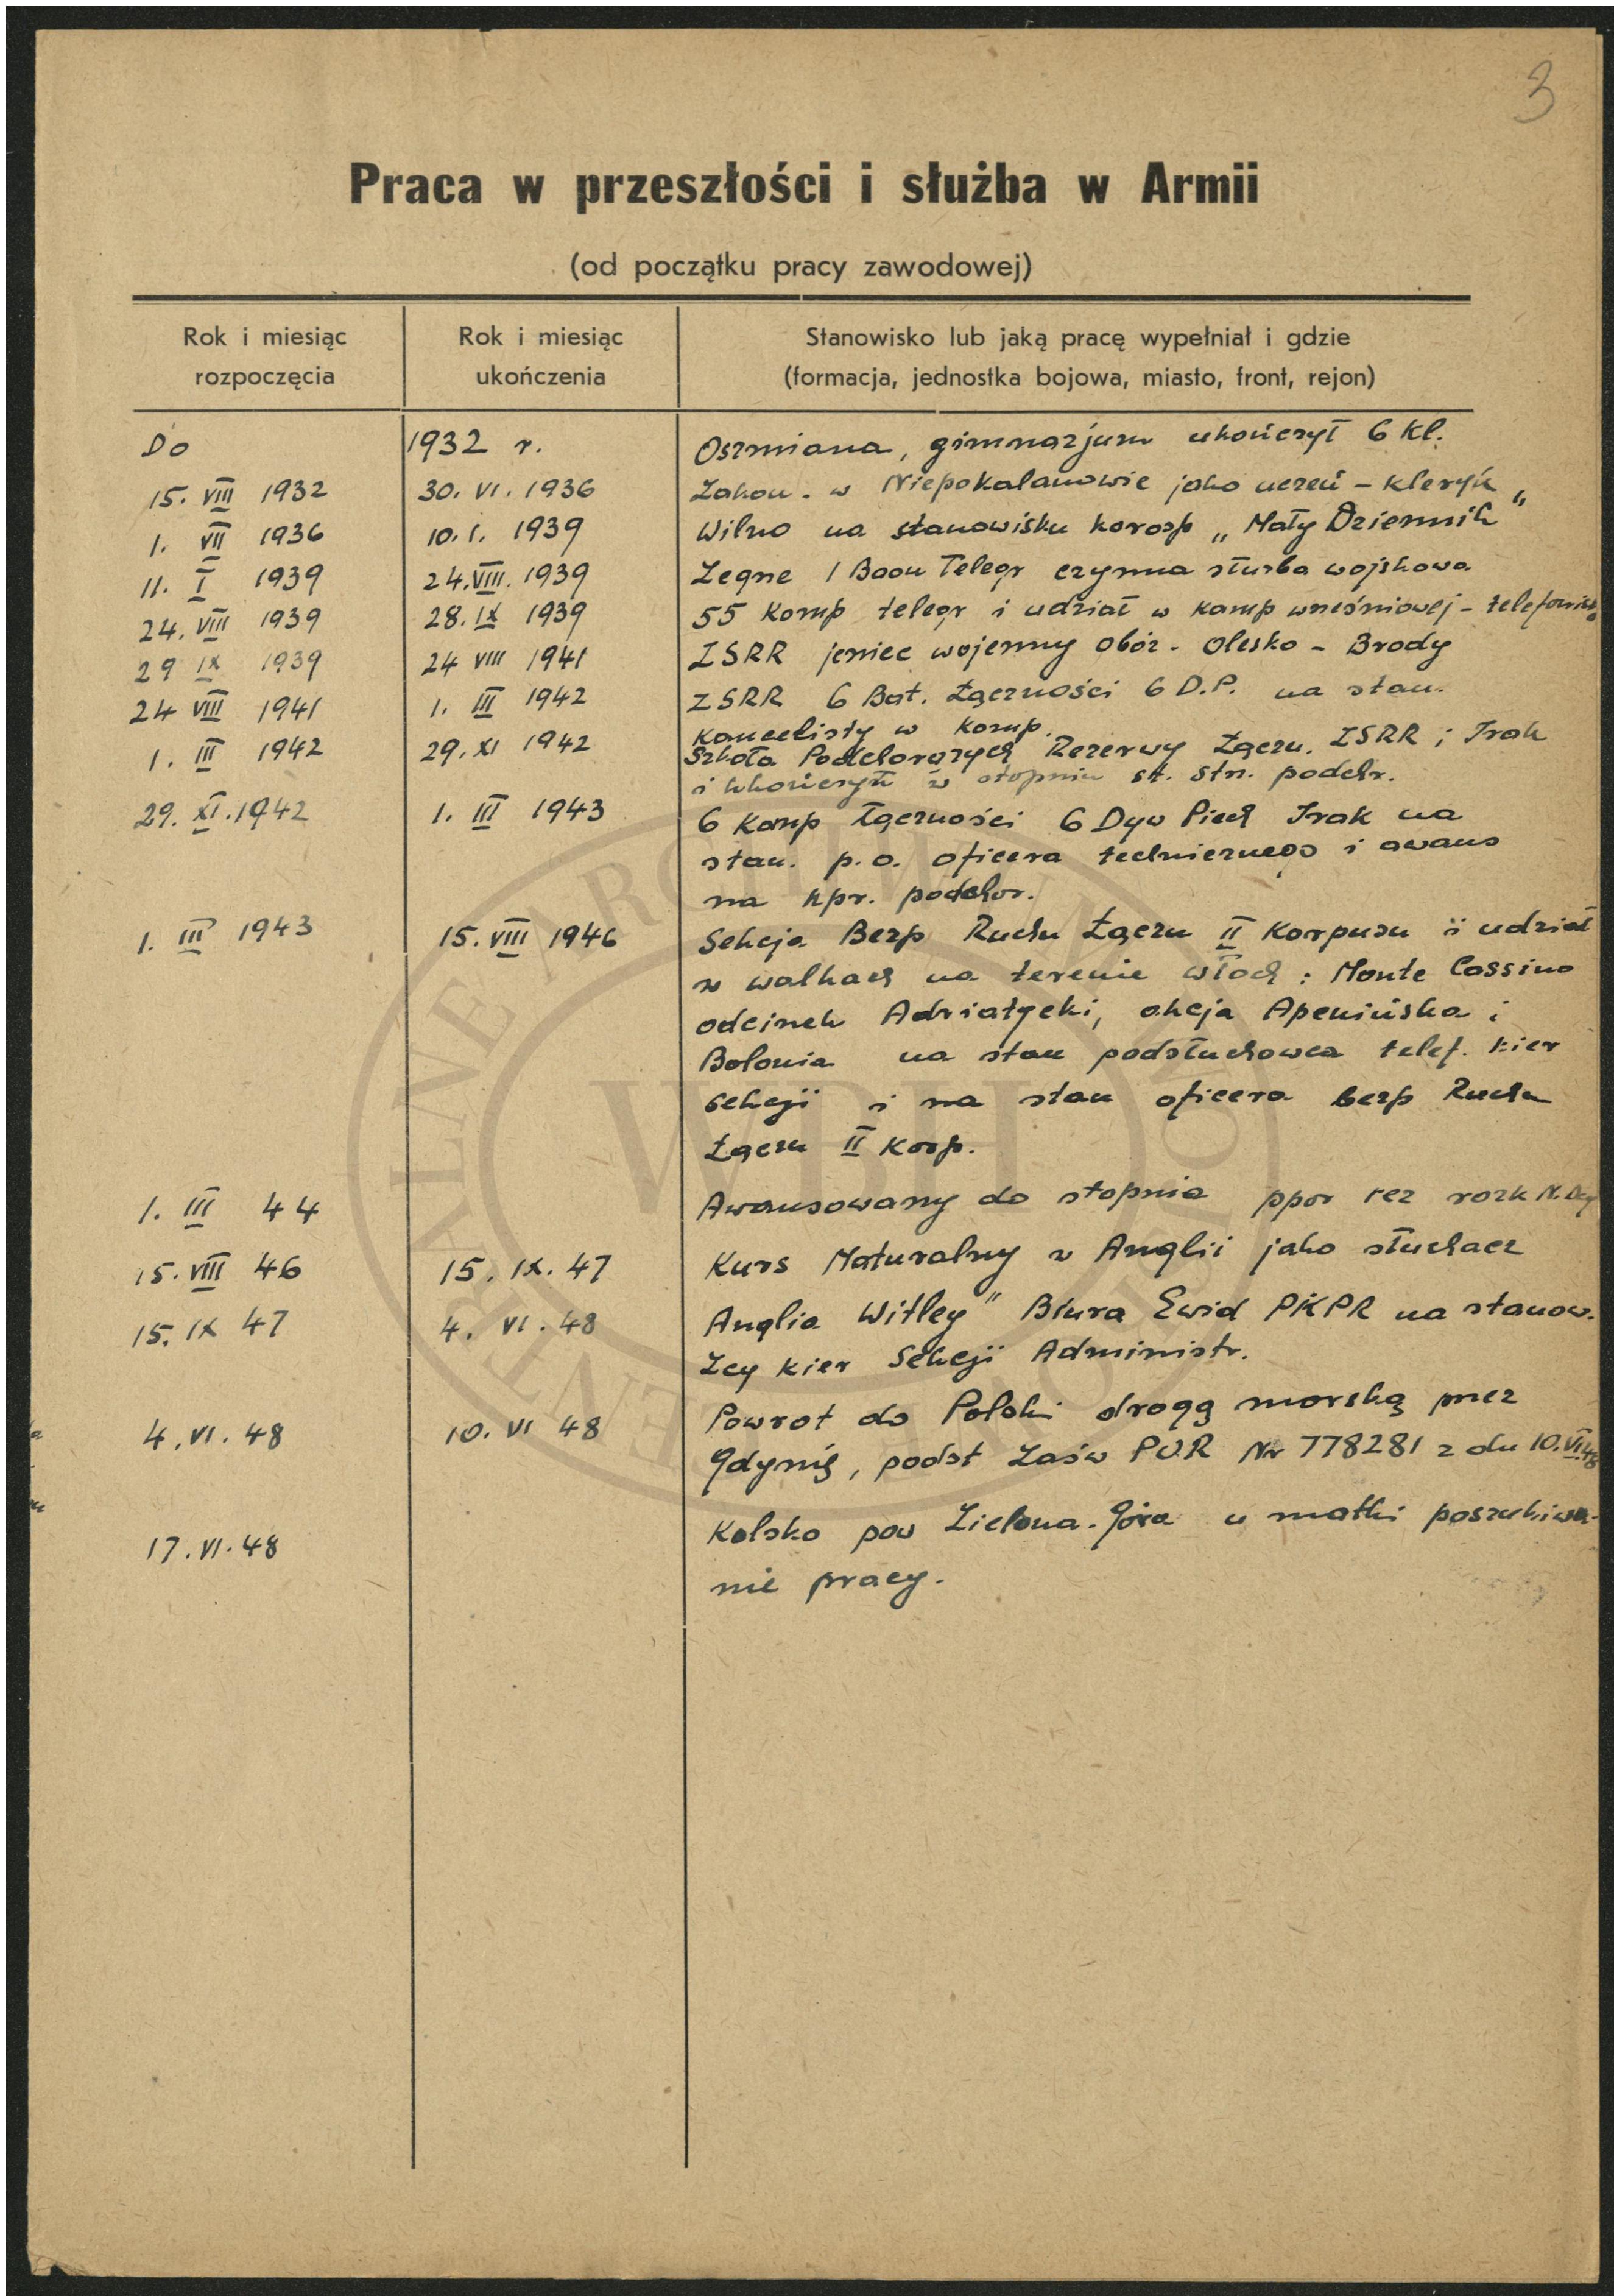 3
Praca w przeszłości i służba w Armii
(od początku pracy zawodowej)
Rok i miesiąc rozpoczęcia
Rok i miesiąc ukończenia
Stanowisko lub jaką pracę wypełniał i gdzie
(formacja, jednostka bojowa, miasto, front, rejon)
Do 1932 r. Oszmiana, gimnazjum ukończył 6 kl.
15. VIII 1932 30. VI. 1936 Zakon. w Niepokalanowie jako uczeń - kleryk
1. VII 1936 10. I. 1939 Wilno na stanowisku koresp „Mały Dziennik"
11. I 1939 24. VIII. 1939 Zegrze 1 Baon Telegr czynna służba wojskowa
24. VIII 1939 28. IX 1939 55 Komp telegr i udział w kamp wrześniowej - telefonista
29 IX 1939 24 VIII 1941 ZSRR jeniec wojenny obóz - Olesko - Brody
24 VIII 1941 1. III 1942 ZSRR 6 Bat. Łączności 6 D.P. na stan.
kancelisty w komp.
1. III 1942 29. XI 1942 Szkoła Podchorążych Rezerwy Łączn. ZSRR i Irak
i ukończył w stopniu st. strz. podchr.
29. XI. 1942 1. III 1943 6 Komp Łączności 6 Dyw Piech Irak na
stan. p. o. oficera technicznego i awans
na kpr. podchor.
1. III 1943 15. VIII 1946 Sekcja Bezp Ruchu Łączn II Korpusu i udział
w walkach na terenie Włoch : Monte Cassino
odcinek Adriatycki, akcja Apenińska i
Bolonia na stan podsłuchowca telef. kier
sekcji i na stan oficera bezp Ruchu
Łączn II Korp.
1. III 44 Awansowany do stopnia ppor rez rozk
15. VIII 46 15. IX. 47 Kurs Maturalny w Anglii jako słuchacz
15. IX 47 4. VI. 48 Anglia Witley" Biura Ewid PKPR na stanow.
Zcy kier Sekcji Administr.
4. VI. 48 10. VI 48 Powrot do Polski drogą morską przez
Gdynię, podst Zaśw PUR Nr 778281 z dn 10. VI. 48
17. VI. 48 Kolsko pow Zielona-Góra u matki poszukiwa-
nie pracy.